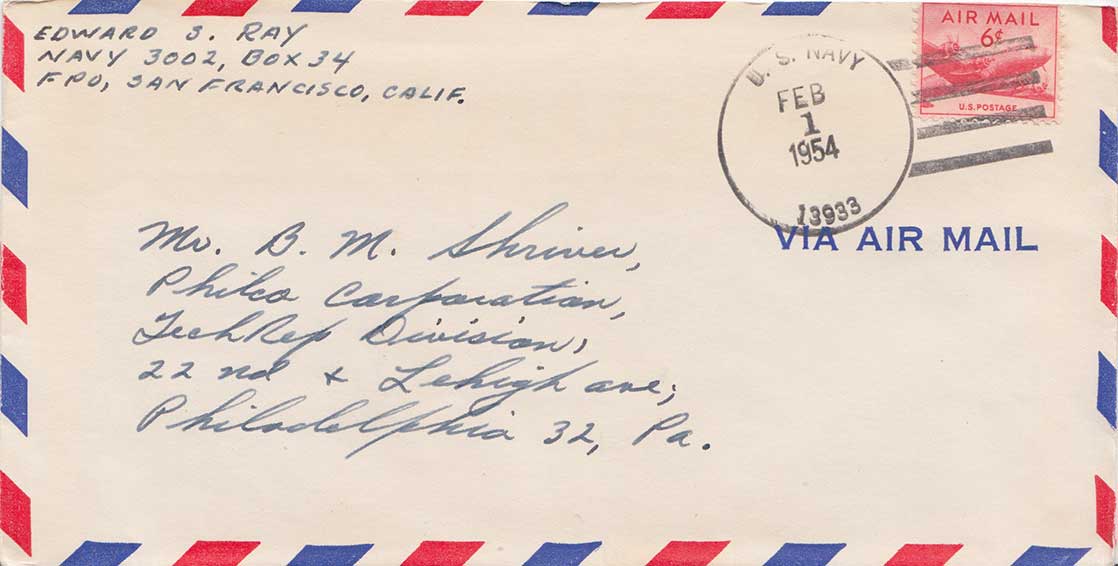 EDWARD S. RAY
NAVY 3002, BOX 34
FPO, SAN FRANCISCO, CALIF.
U. S. NAVY
FEB
1
1954
13933
AIR MAIL
6¢
U.S. POSTAGE
VIA AIR MAIL
Mr. B. M. Shriver,
Philco Corporation,
TechRep Division,
22nd + Lehigh ave,
Philadelphia 32, Pa.